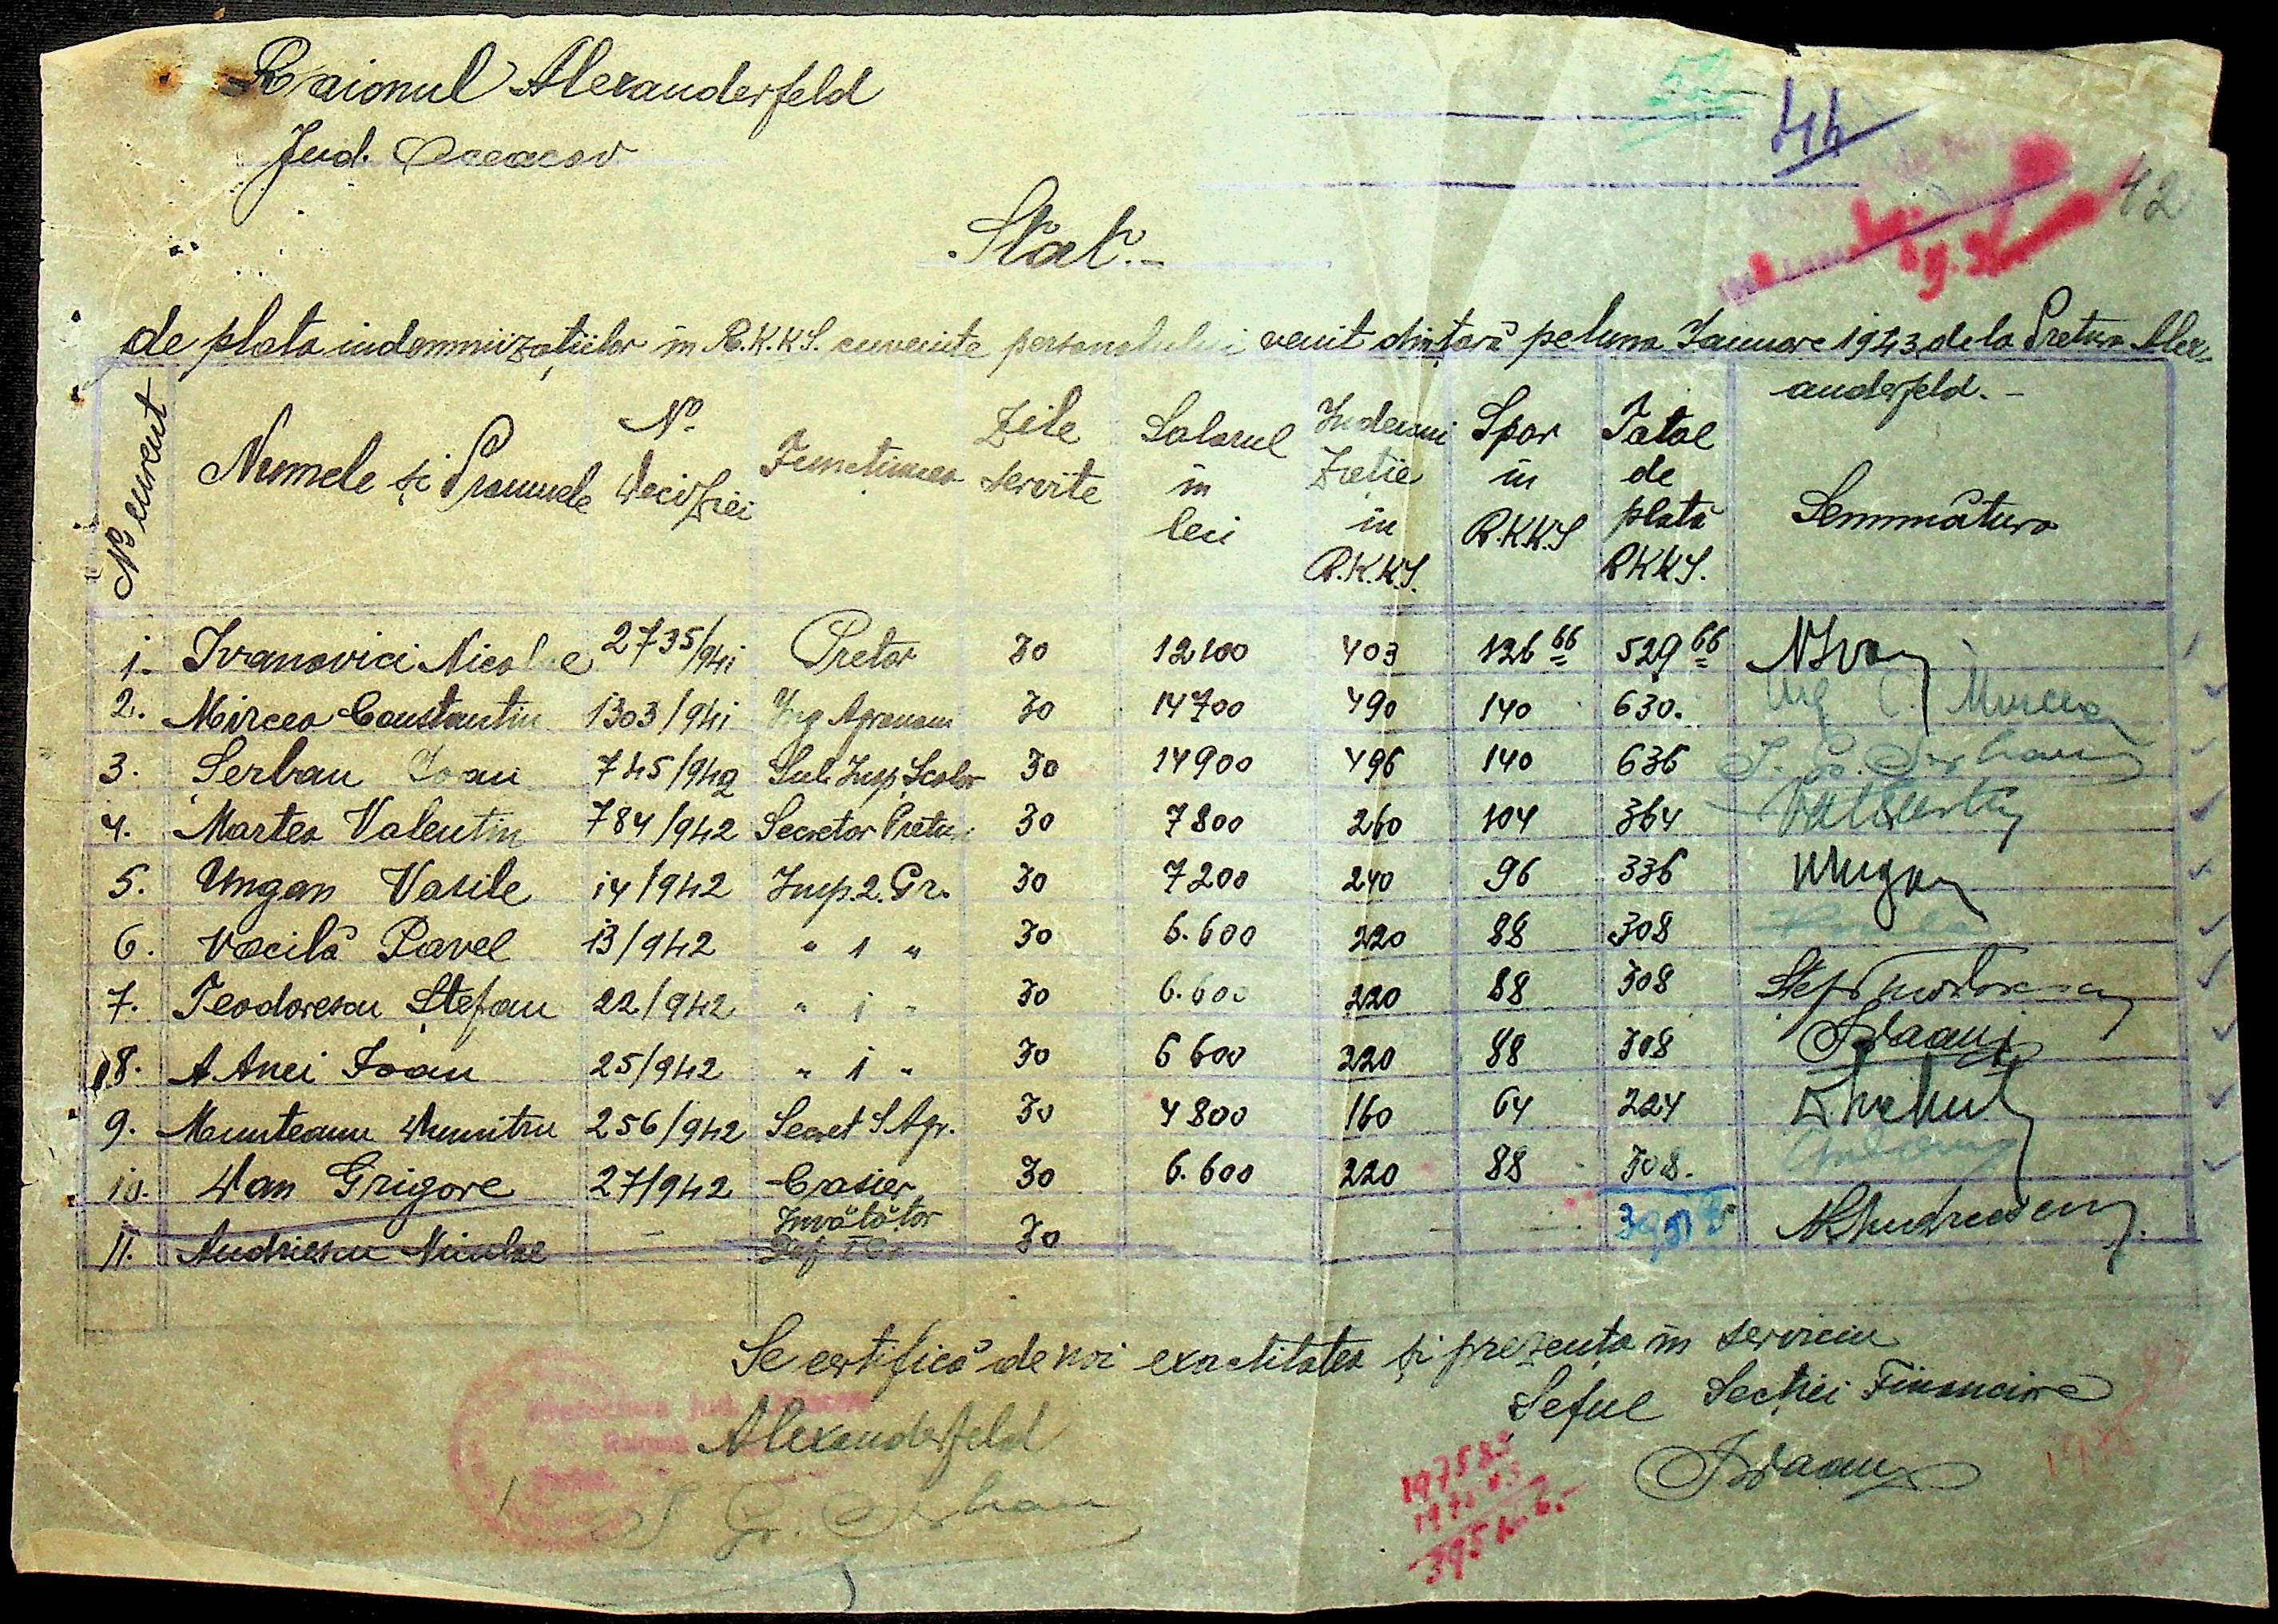 44
42
Raionul Alexanderfeld
Jud. Oceacov
Stat.-
de plata indemnizațiilor în R.K.K.S. cuvenite personalului venit din țară pe luna Ianuare 1943 de la Pretura Alex-
anderfeld.-
No curent Numele și Pronumele No. Deciziei Functiunea Zile servite Salarul in lei Indemnizatie in R.K.K.S. Spor in R.K.K.S Total de plată RKKS. Semmătura
1. Ivanovici Nicolae 2735/941 Pretor 30 12100 403 126 66 529 66
2. Mircea Constantin 1303/941 Ing Agronom 30 14700 490 140 630. Ing C. Mircea
3. Șerban Ioan 745/942 Sub Insp Școlar 30 14900 496 140 636
4. Martea Valentin 784/942 Secretor Pretur 30 7800 260 104 364
5. Ungan Vasile 14/942 Insp. 2. Gr. 30 7200 240 96 336 Ungan
6. Vacilă Pavel 13/942 " 1 " 30 6.600 220 88 308
7. Teodorescu Ștefan 22/942 " 1 " 30 6.600 220 88 308 Ștef Teodorescu
8. A Anei Ioan 25/942 " 1 " 30 6 600 220 88 308
9. Munteanu Dumitru 256/942 Secret S Agr. 30 4800 160 64 224
10. Dan Grigore 27/942 Casier 30 6.600 220 88 308.
11. Andriescu Niculae Invătător 30 N Andriescu
Se certifică de noi exactitatea și prezența în serviciu
Șeful Secției Financiare
Alexanderfeld